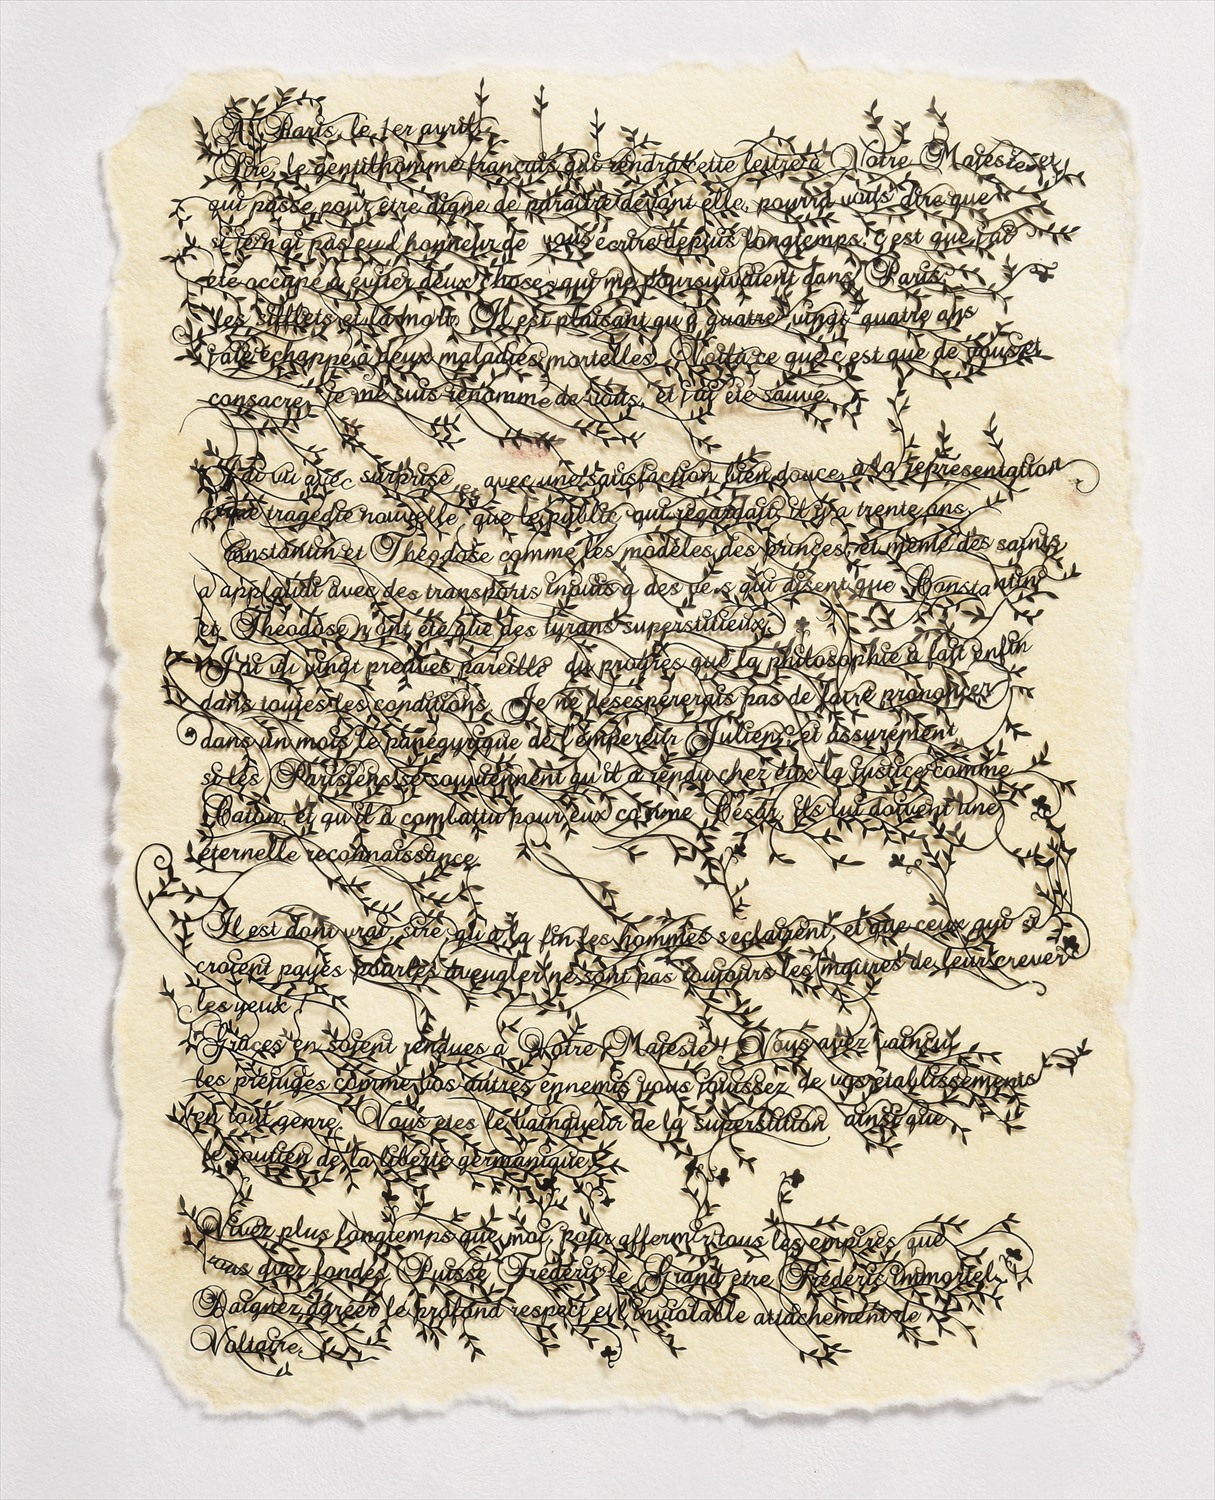 A Paris, le 1er avril
Sire, le gentilhomme français qui rendra cette lettre à Votre Majesté, et
qui passe pour être digne de paraître devant elle, pourra vous dire que
si je n'ai pas eu l'honneur de vous écrire depuis longtemps, c'est que j'ai
été occupé à éviter deux choses qui me poursuivaient dans Paris:
les sifflets et la mort. Il est plaisant qu'à quatre-vingt-quatre ans
j'aie échappé à deux maladies mortelles. Voilà ce que c'est que de vous
consacrer je me suis renommé de vous, et j'ai été sauvé.
J'ai vu avec surprise et avec une satisfaction bien douce, à la représentation
d'une tragédie nouvelle, que le public, qui regardait, il y a trente ans,
Constantin et Théodose comme les modèles des princes, et même des saints,
a applaudi avec des transports inouïs à des vers qui disent que Constantin
et Théodose n'ont été que des tyrans superstitieux.
J'ai vu vingt preuves pareilles du progrès que la philosophie a fait enfin
dans toutes les conditions. Je ne désespérerais pas de faire prononcer
dans un mois le panégyrique de l'empereur Julien; et assurément
si les Parisiens se souviennent qu'il a rendu chez eux la justice comme
Caton, et qu'il a combattu pour eux comme César, ils lui doivent une
éternelle reconnaissance.
Il est donc vrai, sire, qu'à la fin les hommes s'éclairent, et que ceux qui se
croient payés pour les aveugler ne sont pas toujours les maîtres de leur crever
les yeux !
Grâces en soient rendues à Votre Majesté! Vous avez vaincu
les préjugés comme vos autres ennemis vous jouissez de vos établissements
en tout genre. Vous êtes le vainqueur de la superstition ainsi que
le soutien de la liberté germanique.
Vivez plus longtemps que moi, pour affermir tous les empires que
vous avez fondés. Puisse Frédéric le Grand être Frédéric immortel.
Daignez agréer le profond respect et l'inviolable attachement de
Voltaire.